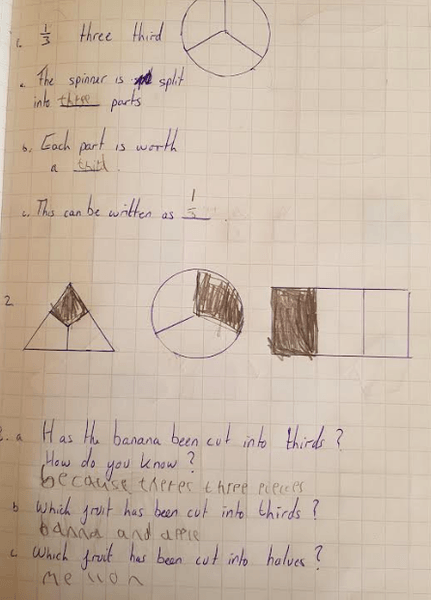 1. 1/3 three third
a. The spinner is split
into three parts
b. Each part is worth
a third.
c. This can be written as 1/3.
2.
3. a Has the banana been cut into thirds?
How do you know?
because theres three pieces
b Which fruit has been cut into thirds?
banna and apple
c Which fruit has been cut into halves?
mellon